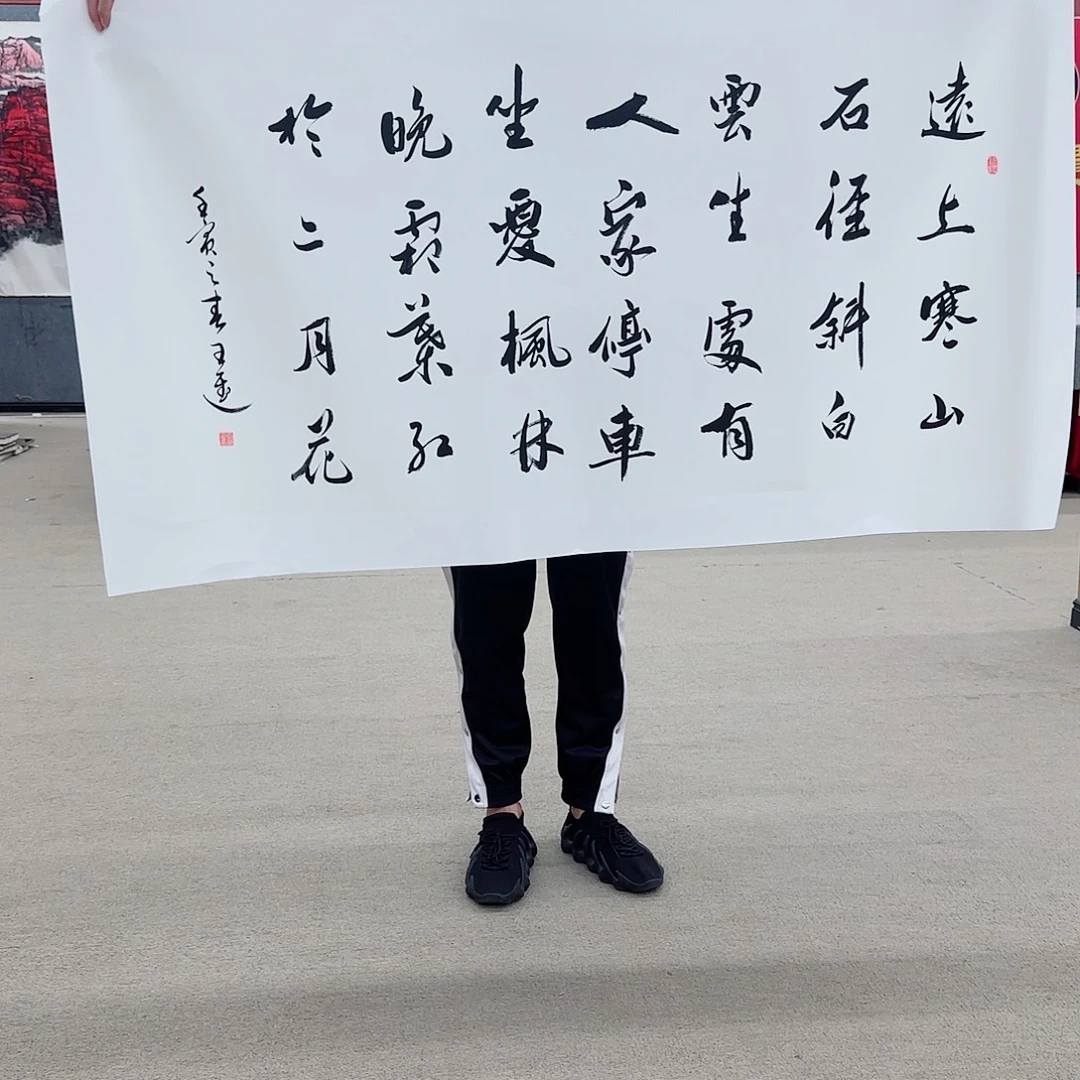 遠上寒山
石徑斜白
雲生處有
人家停車
坐愛楓林
晚霜葉紅
於二月花
壬寅之春王遂